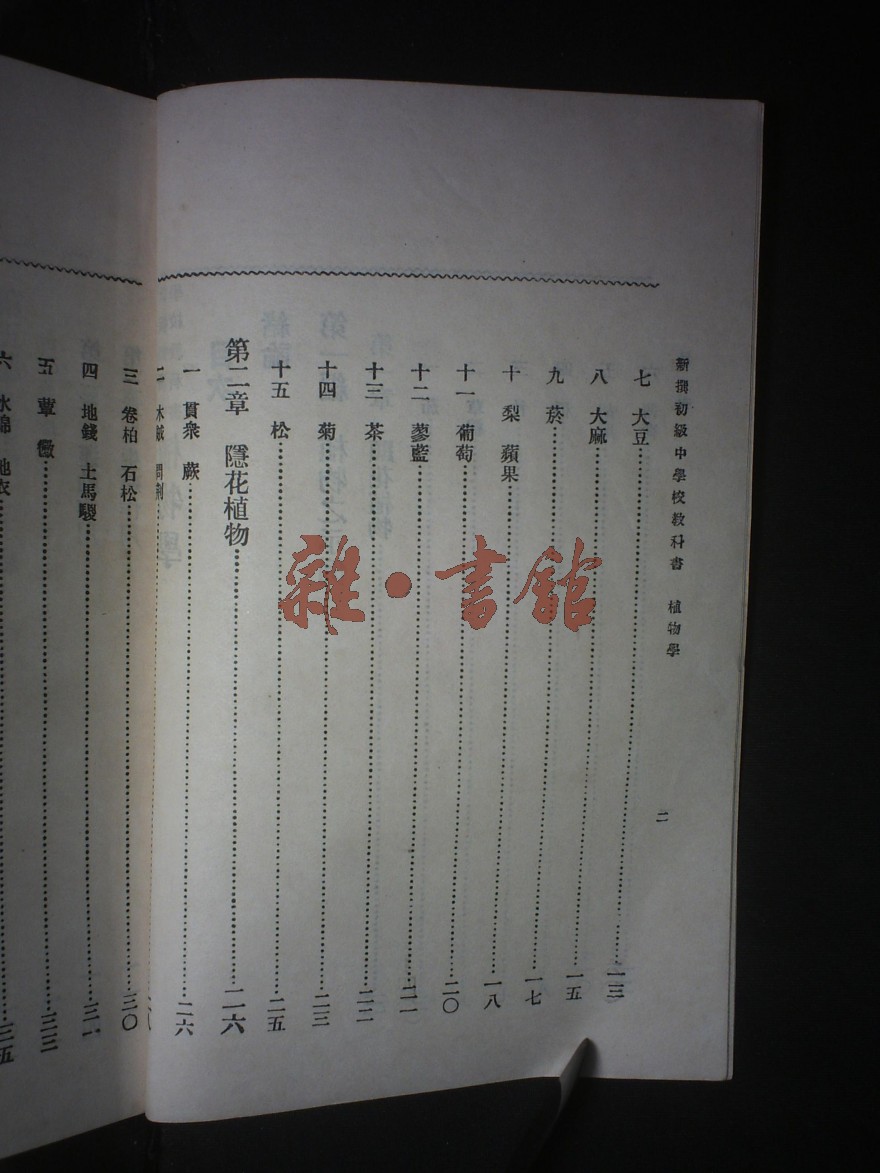 新撰初級中學校教科書 植物學
二
七 大豆……一三
八 大麻……一五
九 菸……一七
十 梨 蘋果……一八
十一 葡萄……二〇
十二 蓼藍……二一
十三 茶……二二
十四 菊……二三
十五 松……二五
第二章 隱花植物……二六
一 貫衆 蕨……二六
二 木賊
三 卷柏 石松……三〇
四 地錢 土馬騣……三一
五 蕈 黴……三三
六 水綿 地衣……三五
雜·書館